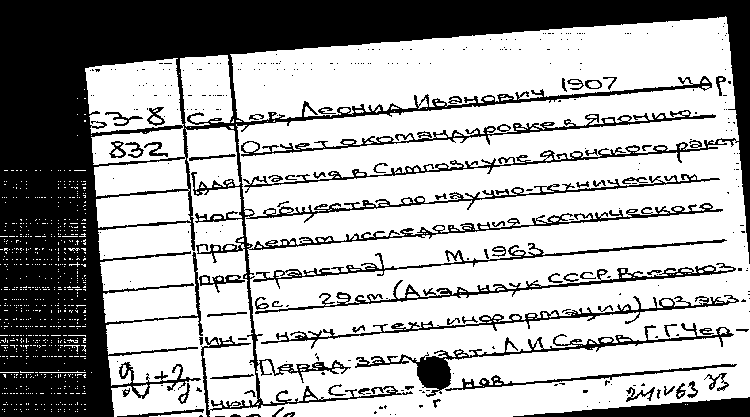 63-8 Седов, Леонид Иванович, 1907 и др.
832 Отчет о командировке в Японию.
[для участия в Симпозиуме Японского ракет-
ного общества по научно-техническим
проблемам исследования космического
пространства]. М., 1963
6 с. 29 см. (Акад. наук СССР. Всесоюз.
ин-т науч. и техн. информации) 103 экз.
Перед загл. авт.: Л.И. Седов, Г.Г. Чер-
ный, С.А. Степанов.
24/IV 63